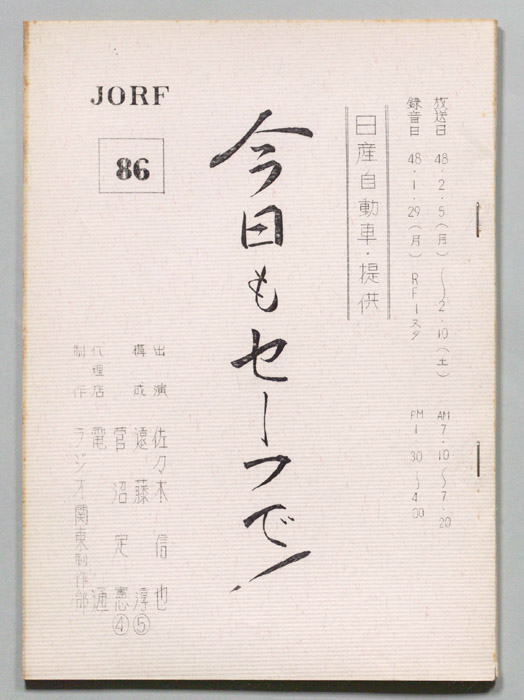 放送日 48・2・5(月)〜2・10(土) AM7・10〜7・20
録音日 48・1・29(月) RF1スタ PM1 30〜4 00
日産自動車・提供
今日もセーフで!
JORF
86
出演 佐々木信也
構成 遠藤淳⑤
菅沼定憲④
代理店 電通
制作 ラジオ関東制作部